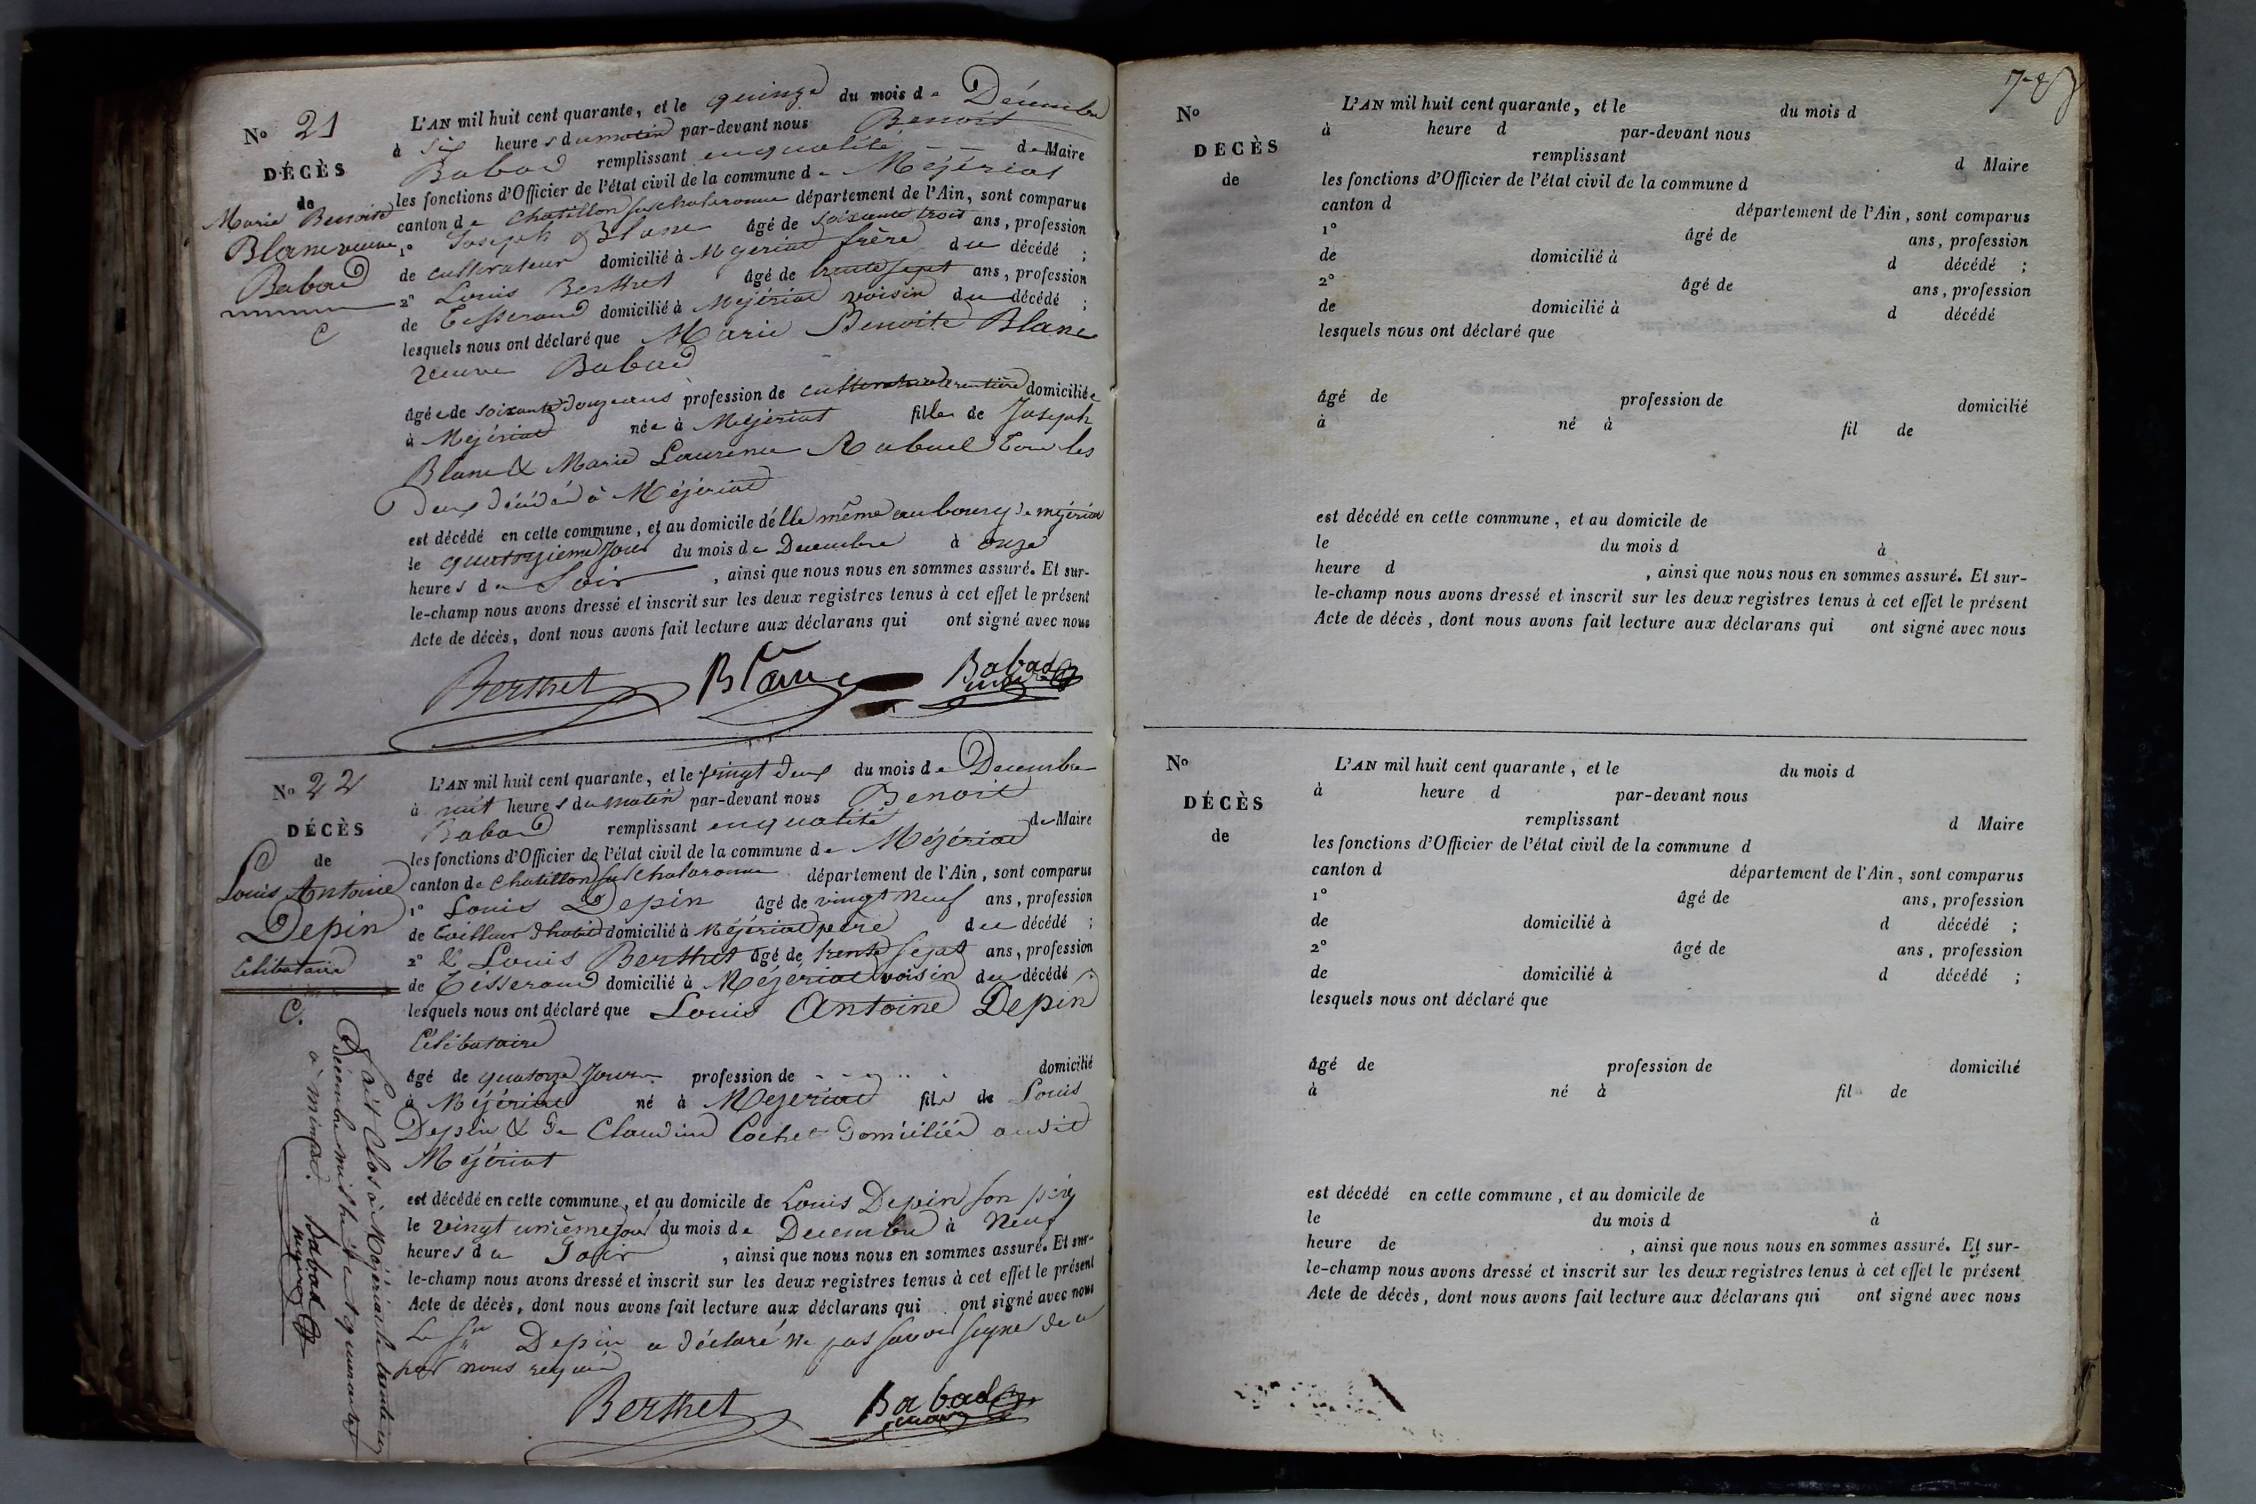 No 21
DÉCÈS
de
Marie Benoite
Blanc veuve
Babad
C
L'AN mil huit cent quarante, et le quinze du mois de Décembre
à six heures du matin par-devant nous Benoit
Babad remplissant en qualité de Maire
les fonctions d'Officier de l'état civil de la commune de Mézériat
canton de Chatillon sur Chalaronne département de l'Ain, sont comparus
1° Joseph Blanc âgé de soixante trois ans, profession
de cultivateur domicilié à Mézériat frère du décédé ;
2° Louis Berthet âgé de trente sept ans, profession
de Tisserand domicilié à Mézériat voisin du décédé ;
lesquels nous ont déclaré que Marie Benoite Blanc
veuve Babad
âgée de soixante douze ans profession de cultivatrice rentière domiciliée
à Mézériat née à Mézériat fille de Joseph
Blanc & Marie Laurence Rabuel tous les
deux décédés à Mézériat
est décédé en cette commune, et au domicile d'elle même au bourg de mézériat
le quatorzième jour du mois de Decembre à onze
heures du Soir , ainsi que nous nous en sommes assuré. Et sur-
le-champ nous avons dressé et inscrit sur les deux registres tenus à cet effet le présent
Acte de décès, dont nous avons fait lecture aux déclarans qui ont signé avec nous
Berthet Blanc Babad
maire
No 22
DÉCÈS
de
Louis Antoine
Depin
Celibataire
C.
L'AN mil huit cent quarante, et le vingt deux du mois de Decembre
à huit heures du matin par-devant nous Benoit
Babad remplissant en qualité de Maire
les fonctions d'Officier de l'état civil de la commune de Mézériat
canton de Chatillon sur Chalaronne département de l'Ain, sont comparus
1° Louis Depin âgé de vingt neuf ans, profession
de Tailleur d'habits domicilié à Mézériat père du décédé ;
2° Louis Berthet âgé de trente sept ans, profession
de Tisserand domicilié à Mézériat voisin du décédé ;
lesquels nous ont déclaré que Louis Antoine Depin
Célibataire
âgé de quatorze jours profession de domicilié
à Mézériat né à Mézériat fils de Louis
Depin & de Claudine Cochet domiciliés audit
Mézériat
est décédé en cette commune, et au domicile de Louis Depin son père
le vingt unième jour du mois de Decembre à Neuf
heures du Soir , ainsi que nous nous en sommes assuré. Et sur-
le-champ nous avons dressé et inscrit sur les deux registres tenus à cet effet le présent
Acte de décès, dont nous avons fait lecture aux déclarans qui ont signé avec nous
Le Sr Depin a déclaré ne pas savoir signer de ce
par nous requis
Berthet Babad
maire
Fait Clos à Mézériat le trente un
Décembre mil huit cent quarante
à minuit.
Babad
maire
No
DECÈS
de
L'AN mil huit cent quarante, et le du mois d
à heure d par-devant nous
remplissant d Maire
les fonctions d'Officier de l'état civil de la commune d
canton d département de l'Ain, sont comparus
1° âgé de ans, profession
de domicilié à d décédé ;
2° âgé de ans, profession
de domicilié à d décédé
lesquels nous ont déclaré que
âgé de profession de domicilié
à né à fil de
est décédé en cette commune, et au domicile de
le du mois d à
heure d , ainsi que nous nous en sommes assuré. Et sur-
le-champ nous avons dressé et inscrit sur les deux registres tenus à cet effet le présent
Acte de décès, dont nous avons fait lecture aux déclarans qui ont signé avec nous
No
DÉCÈS
de
L'AN mil huit cent quarante, et le du mois d
à heure d par-devant nous
remplissant d Maire
les fonctions d'Officier de l'état civil de la commune d
canton d département de l'Ain, sont comparus
1° âgé de ans, profession
de domicilié à d décédé ;
2° âgé de ans, profession
de domicilié à d décédé ;
lesquels nous ont déclaré que
âgé de profession de domicilié
à né à fil de
est décédé en cette commune, et au domicile de
le du mois d à
heure de , ainsi que nous nous en sommes assuré. Et sur-
le-champ nous avons dressé et inscrit sur les deux registres tenus à cet effet le présent
Acte de décès, dont nous avons fait lecture aux déclarans qui ont signé avec nous